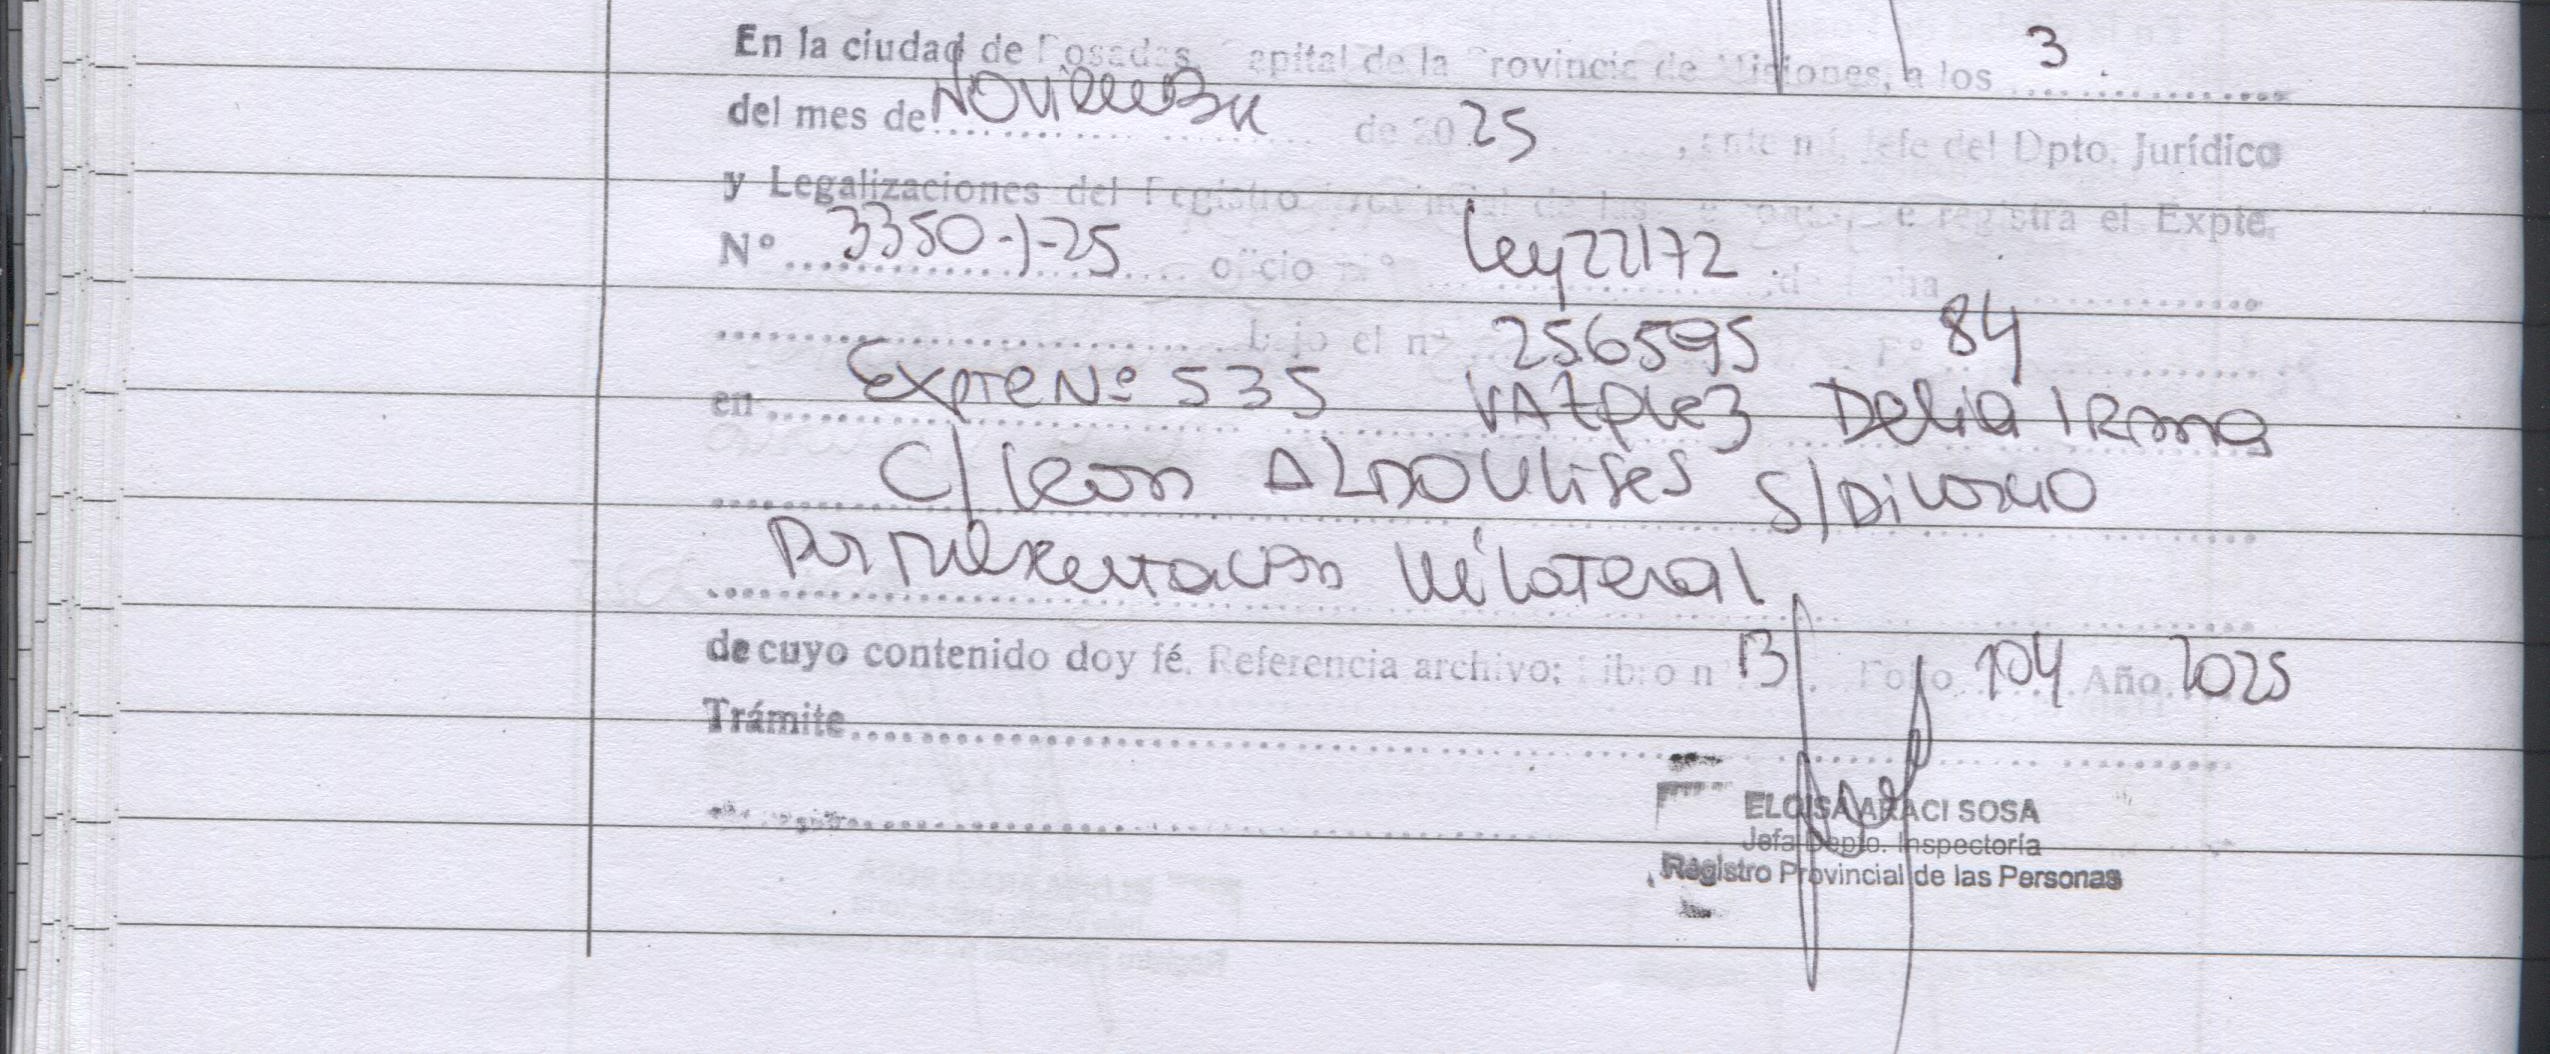 En la ciudad de Posadas, Capital de la Provincia de Misiones, a los 3
del mes de Noviembre de 2025, ante mí, Jefe del Dpto. Jurídico
y Legalizaciones del Registro Provincial de las Personas, se registra el Expte.
Nº 3350-1-25 oficio nº Ley 22172 de fecha
bajo el nº 256595 Fº 84
en Expte Nº 535 VAZquez Delia IRma
C/ Leon ALDO Ulises S/Divorcio
Por Presentacion Unilateral
de cuyo contenido doy fé. Referencia archivo: Libro nº 13 Folio 104 Año 2025
Trámite
ELOISA ARACI SOSA
Jefa Depto. Inspectoría
Registro Provincial de las Personas